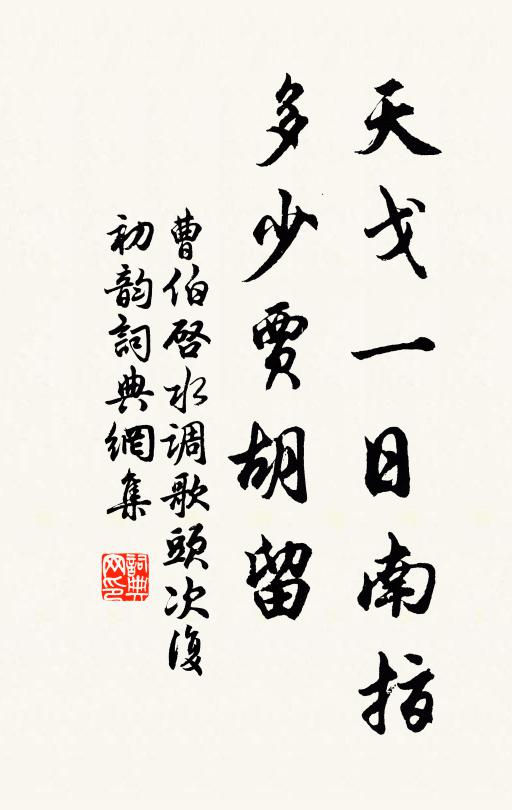 天戈一日南指
多少賈胡留
曹伯啓水调歌頭次復
初韵詞典網集
詞典
网印